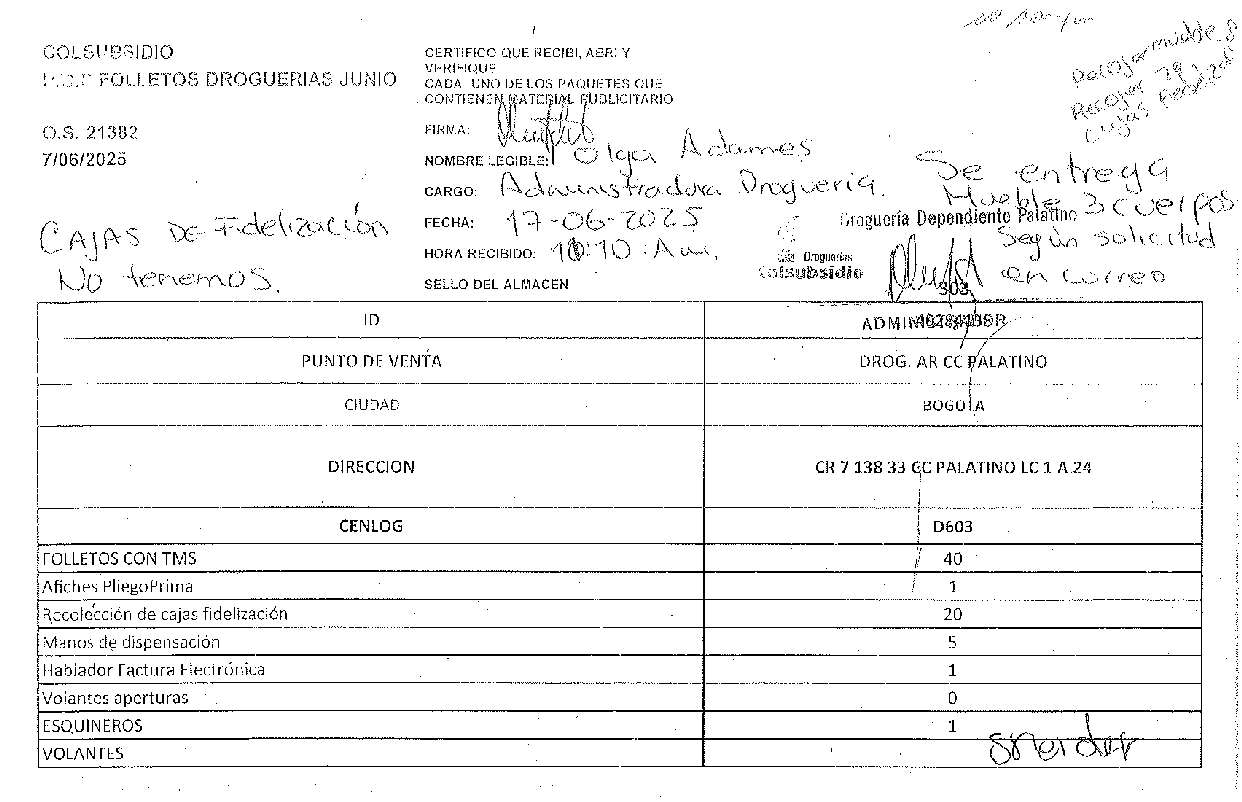 COLSUBSIDIO
FOLLETOS DROGUERIAS JUNIO
O.S. 21382
7/06/2025
CAJAS DE Fidelización
No tenemos.
CERTIFICO QUE RECIBI, ABRI Y
VERIFIQUE
CADA UNO DE LOS PAQUETES QUE
CONTIENEN MATERIAL PUBLICITARIO
FIRMA:
NOMBRE LEGIBLE: Olga Adames
CARGO: Administradora Droguería.
FECHA: 17-06-2025
HORA RECIBIDO: 10:10 Am.
SELLO DEL ALMACEN
Recoger mueble
Recoger
Cajas
Se entrega
Mueble 3 cuerpos
Según solicitud
en correo
Droguería Dependiente Palatino
Droguerías
Colsubsidio
503
ID
PUNTO DE VENTA DROG. AR CC PALATINO
CIUDAD BOGOTA
DIRECCION CR 7 138 33 CC PALATINO LC 1 A 24
CENLOG D603
FOLLETOS CON TMS 40
Afiches PliegoPrima 1
Recolección de cajas fidelización 20
Manos de dispensación 5
Hablador Factura Electrónica 1
Volantes aperturas 0
ESQUINEROS 1
VOLANTES
Sneider